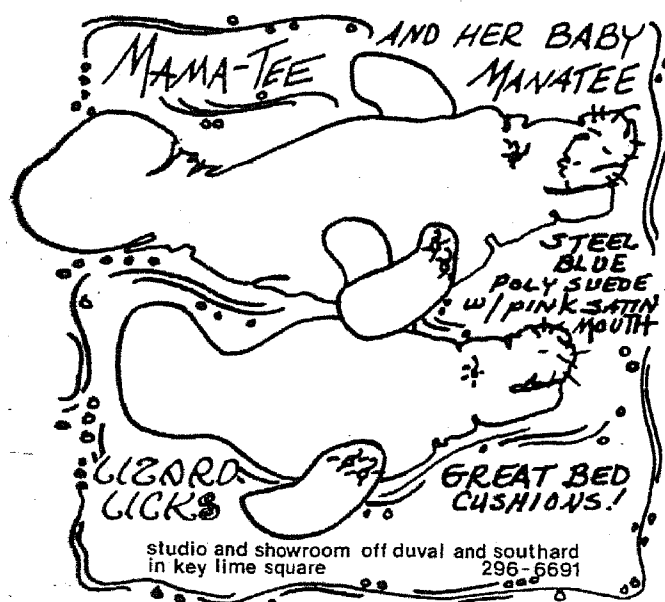 MAMA-TEE AND HER BABY
MANATEE
STEEL
BLUE
POLY SUEDE
W/PINK SATIN
MOUTH
LIZARD
LICKS
GREAT BED
CUSHIONS!
studio and showroom off duval and southard
in key lime square 296-6691